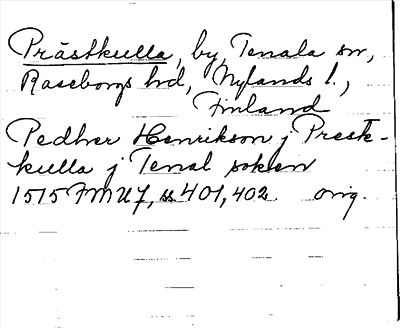 Prästkulla, by, Tenala sn,
Raseborgs hd, Nylands l.,
Finland
Pedher Henrikson j Prest-
kulla j Tenal soken
1515 FMU 7, ss 401, 402. orig.